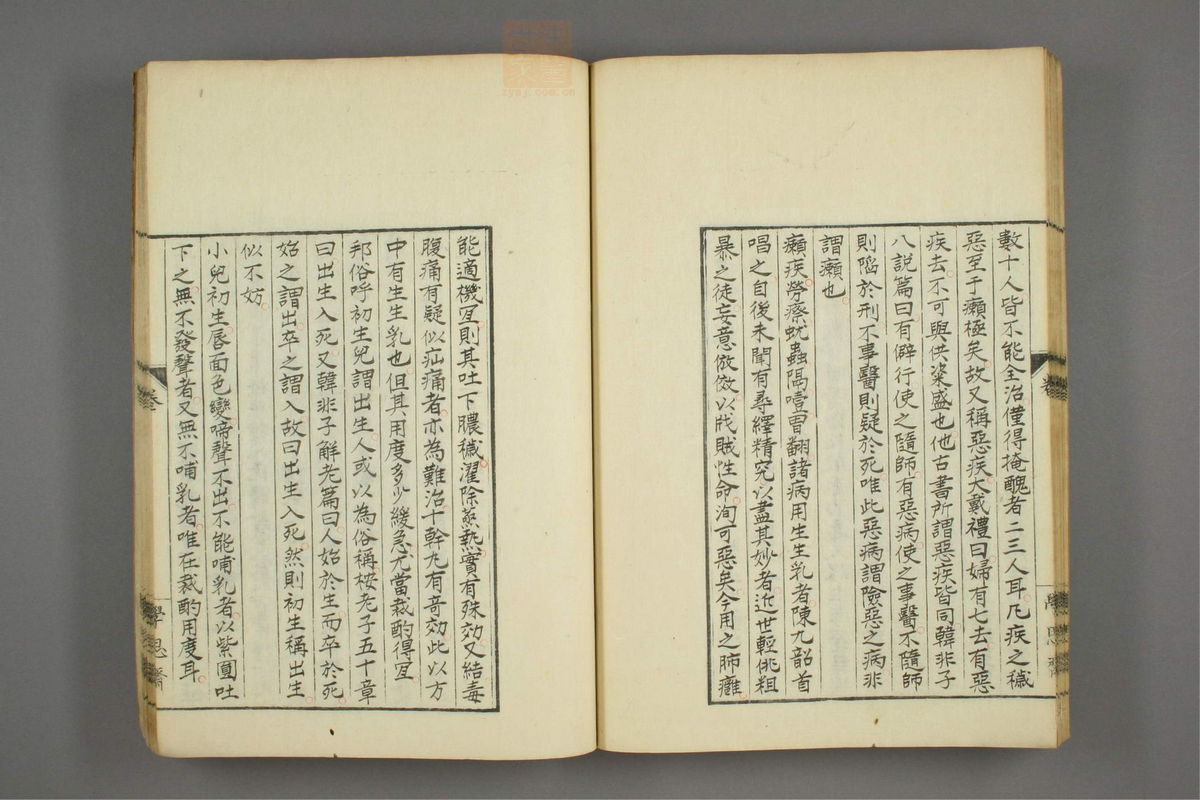 數十人皆不能全治僅得掩醜者二三人耳凡疾之穢
惡至于癩極矣故又稱惡疾大戴禮曰婦有七去有惡
疾去不可與供粢盛也他古書所謂惡疾皆同韓非子
八說篇曰有僻行使之隨師有惡病使之事醫不隨師
則陷於刑不事醫則疑於死唯此惡病謂險惡之病非
謂癩也
癩疾勞瘵蚘蟲隔噎胃翻諸病用生生乳者陳九韶首
唱之自後未聞有尋繹精究以盡其妙者近世輕佻粗
暴之徒妄意倣傚以戕賊性命洵可惡矣今用之肺癰
能適機宜則其吐下膿穢濯除蒸熱實有殊効又結毒
腹痛有疑似疝痛者亦為難治十幹丸有奇効此以方
中有生生乳也但其用度多少緩急尤當裁酌得宜
邦俗呼初生兒謂出生人或以為俗稱桉老子五十章
曰出生入死又韓非子解老篇曰人始於生而卒於死
始之謂出卒之謂入故曰出生入死然則初生稱出生
似不妨
小兒初生唇面色變啼聲不出不能哺乳者以紫圓吐
下之無不發聲者又無不哺乳者唯在裁酌用度耳
學思齋
zysj.com.cn